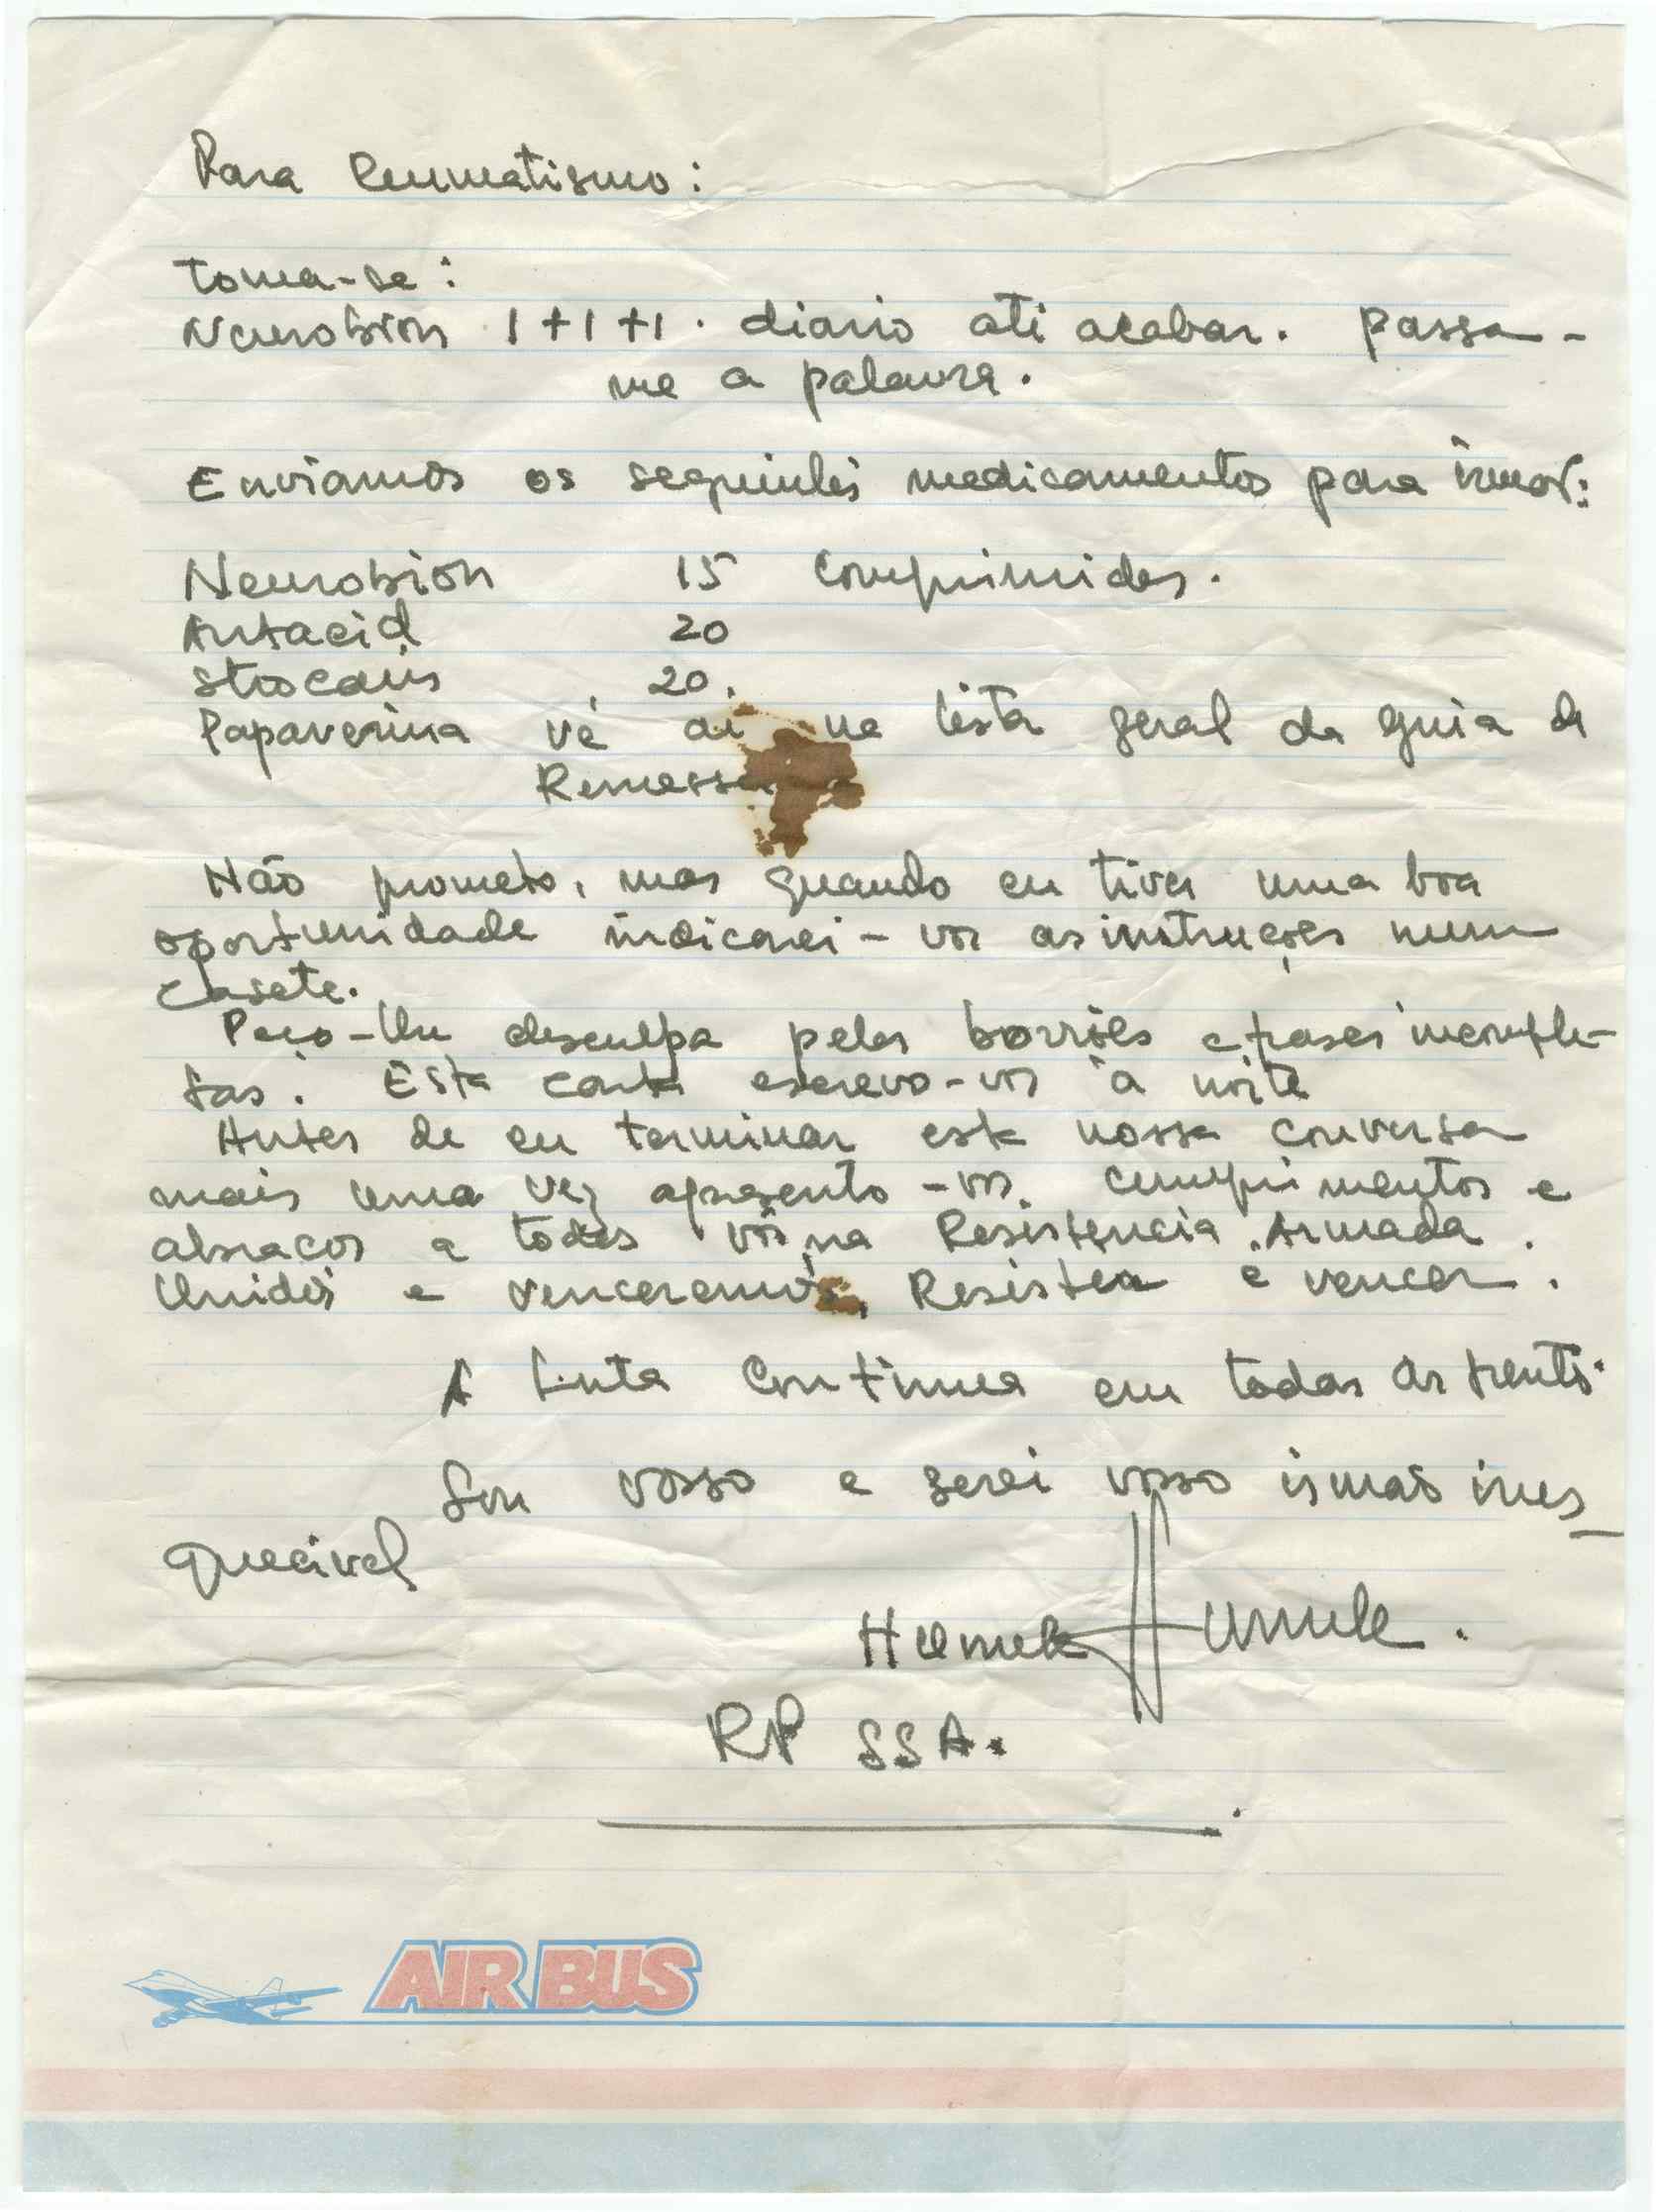 Para Reumatismo:
toma-se:
Neurobion 1+1+1. diario ati acabar. passa-
me a palavra.
Enviamos os seguintes medicamentos para
Neurobion 15 comprimidos.
Antacid 20
20.
Papaverina vê aí na lista geral da guia de
Remessa
Não prometo, mas quando eu tiver uma boa
oportunidade indicarei-vos as instruções num
casete.
Peço-lhe desculpa pelos borrões e frases incomple-
tas. Esta carta escrevo-vos à noite
Antes de eu terminar esta nossa conversa
mais uma vez apresento-vos. cumprimentos e
abracos a todos vós na Resistencia Armada.
Unidos e venceremos, Resistir e vencer.
A Luta Continua em todas as frentes.
Sou vosso e serei vosso irmão ines_
quecivel
RP SSA.
AIR BUS